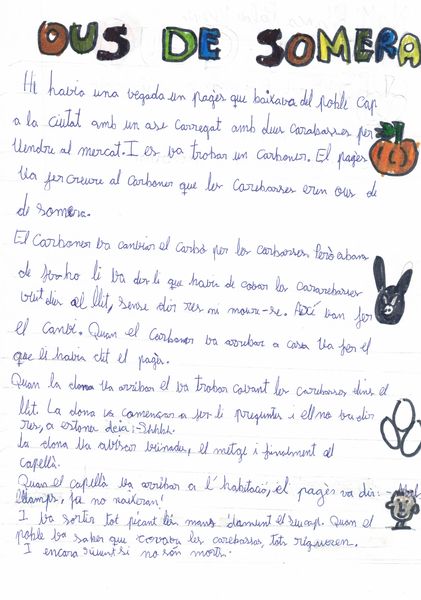 OUS DE SOMERA
Hi havia una vegada un pagès que baixava del poble cap
a la ciutat amb un ase carregat amb dues carabasses per
vendre al mercat. I es va trobar un carboner. El pagès
va fer creure al carboner que les carebasses eren ous de
de somera.
El carboner va canviar el carbó per les carbasses. Però abans
de fer-ho li va dir li que havia de covar les cararebasses
vuit dies al llit, sense dir res ni moure-se. Així van fer
el canvi. Quan el carboner va arribar a casa va fer el
que li havia dit el pagès.
Quan la dona va arribar el va trobar covant les carebasses dins el
llit. La dona va començar a fer-li preguntes i ell no va dir
res, a estones deia:-Shhht.
La dona va avisar veïnades, el metge i finalment al
capellà.
Quan el capellà va arribar a l'habitació, el pagès va dir:
llamps, ja no naixeran!
I va sortir tot picant les mans damunt el seu cap. Quan el
poble va saber que covava les carebasses, tots rigueren.
I encara riuen si no són morts.